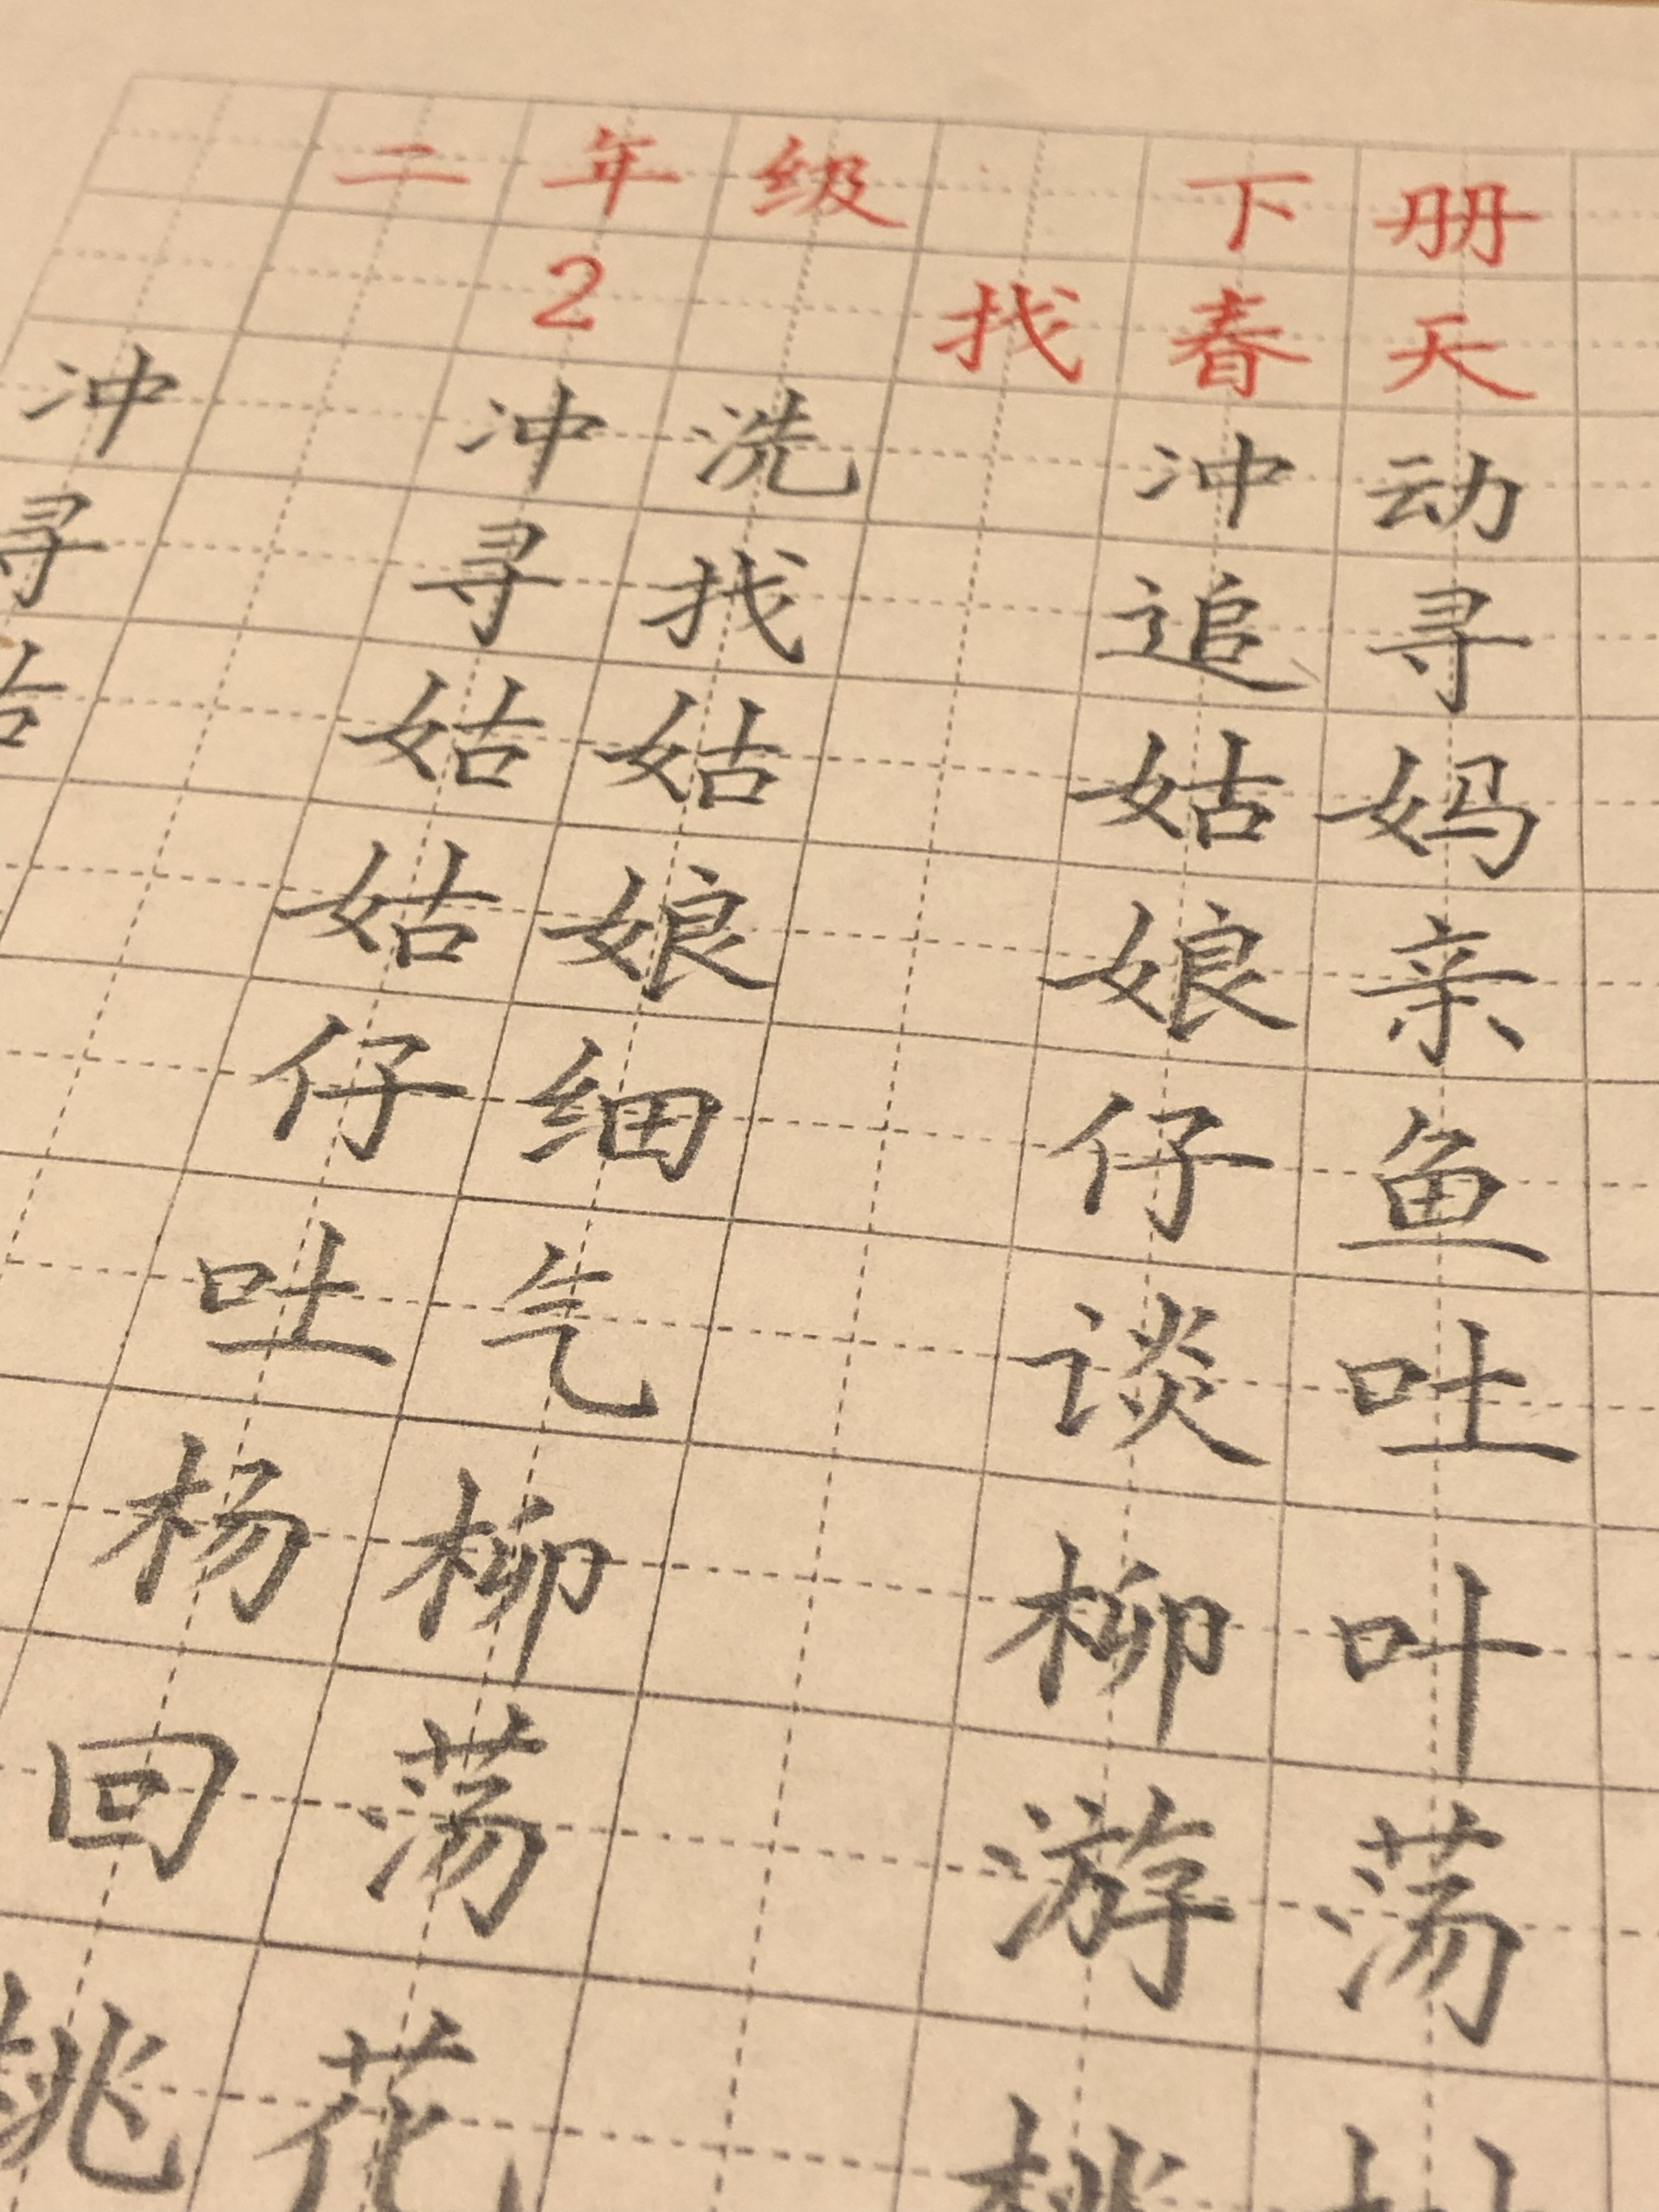 二年级 下册
2 找春天
冲 冲洗 冲动
寻 寻找 追寻
姑姑 姑妈
姑娘 娘亲
仔细 仔鱼
吐气 谈吐
杨柳 柳叶
回荡 游荡
桃花 桃